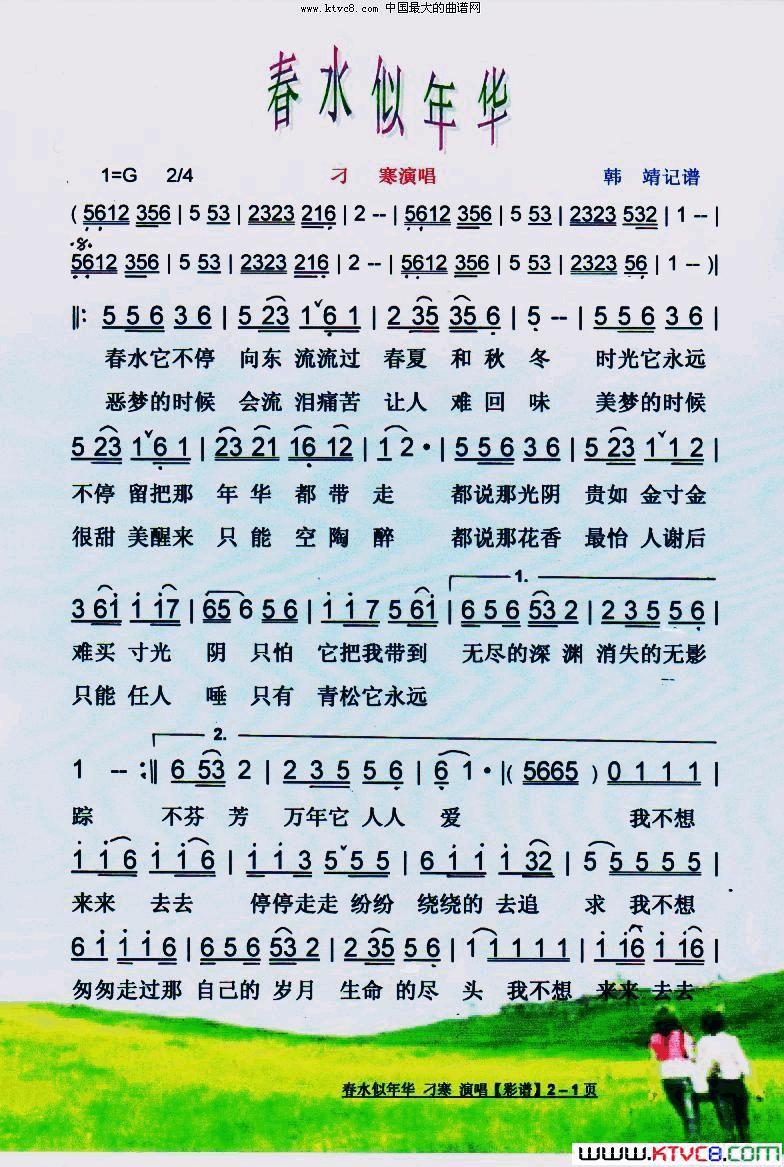 www.ktvc8.com 中国最大的曲谱网
春水似年华
1=G 2/4 刁 寒演唱 韩 靖记谱
( 5612 356 | 5 53 | 2323 216 | 2 -- | 5612 356 | 5 53 | 2323 532 | 1 -- |
5612 356 | 5 53 | 2323 216 | 2 -- | 5612 356 | 5 53 | 2323 56 | 1 -- )|
||: 5 5 6 3 6 | 5 23 1 6 1 | 2 35 35 6 | 5 -- | 5 5 6 3 6 |
春水它不停 向东 流流过 春夏 和 秋 冬 时光它永远
恶梦的时候 会流 泪痛苦 让人 难 回 味 美梦的时候
5 23 1 6 1 | 23 21 16 12 | 1 2 · | 5 5 6 3 6 | 5 23 1 1 2 |
不停 留把那 年 华 都 带 走 都说那光阴 贵如 金寸金
很甜 美醒来 只 能 空 陶 醉 都说那花香 最怡 人谢后
1.
3 61 1 17 | 65 6 5 6 | 1 1 7 5 61 | 6 5 6 53 2 | 2 3 5 5 6 |
难买 寸光 阴 只怕 它把我带到 无尽的深 渊 消失的无影
只能 任人 唾 只有 青松它永远
2.
1 -- :|| 6 53 2 | 2 3 5 5 6 | 6 1 · |( 5665 ) 0 1 1 1 |
踪 不芬 芳 万年它 人人 爱 我不想
1 1 6 1 1 6 | 1 1 3 5 5 5 | 6 1 1 1 32 | 5 5 5 5 5 |
来来 去去 停停走走 纷纷 绕绕的 去追 求 我不想
6 1 1 1 6 | 6 5 6 53 2 | 2 35 5 6 | 1 1 1 1 1 | 1 16 1 16 |
匆匆走过那 自己的 岁月 生命 的尽 头 我不想 来来 去去
春水似年华 刁寒 演唱【彩谱】2－1页
www.KTVC8.com